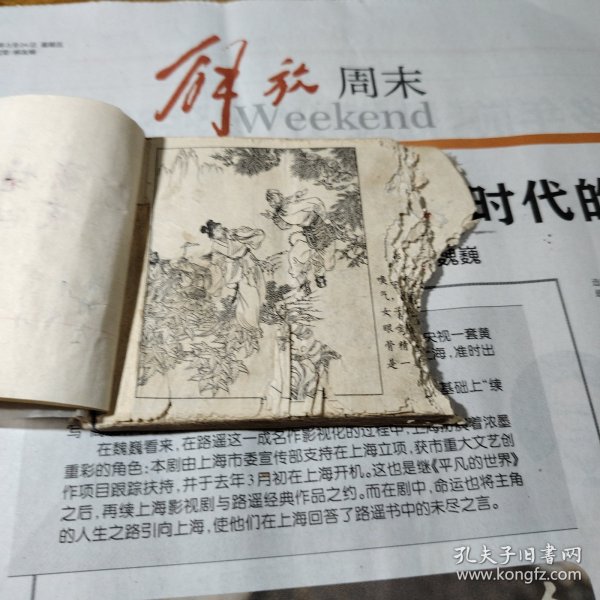 解放 周末
Weekend
时代的
魏巍
央视一套黄
上海，准时出
基础上“续
在魏巍看来，在路遥这一成名作影视化的过程中，上海扮演着浓墨
重彩的角色：本剧由上海市委宣传部支持在上海立项，获市重大文艺创
作项目跟踪扶持，并于去年3月初在上海开机。这也是继《平凡的世界》
之后，再续上海影视剧与路遥经典作品之约。而在剧中，命运也将主角
的人生之路引向上海，使他们在上海回答了路遥书中的未尽之言。
孔夫子旧书网
www.kongfz.com